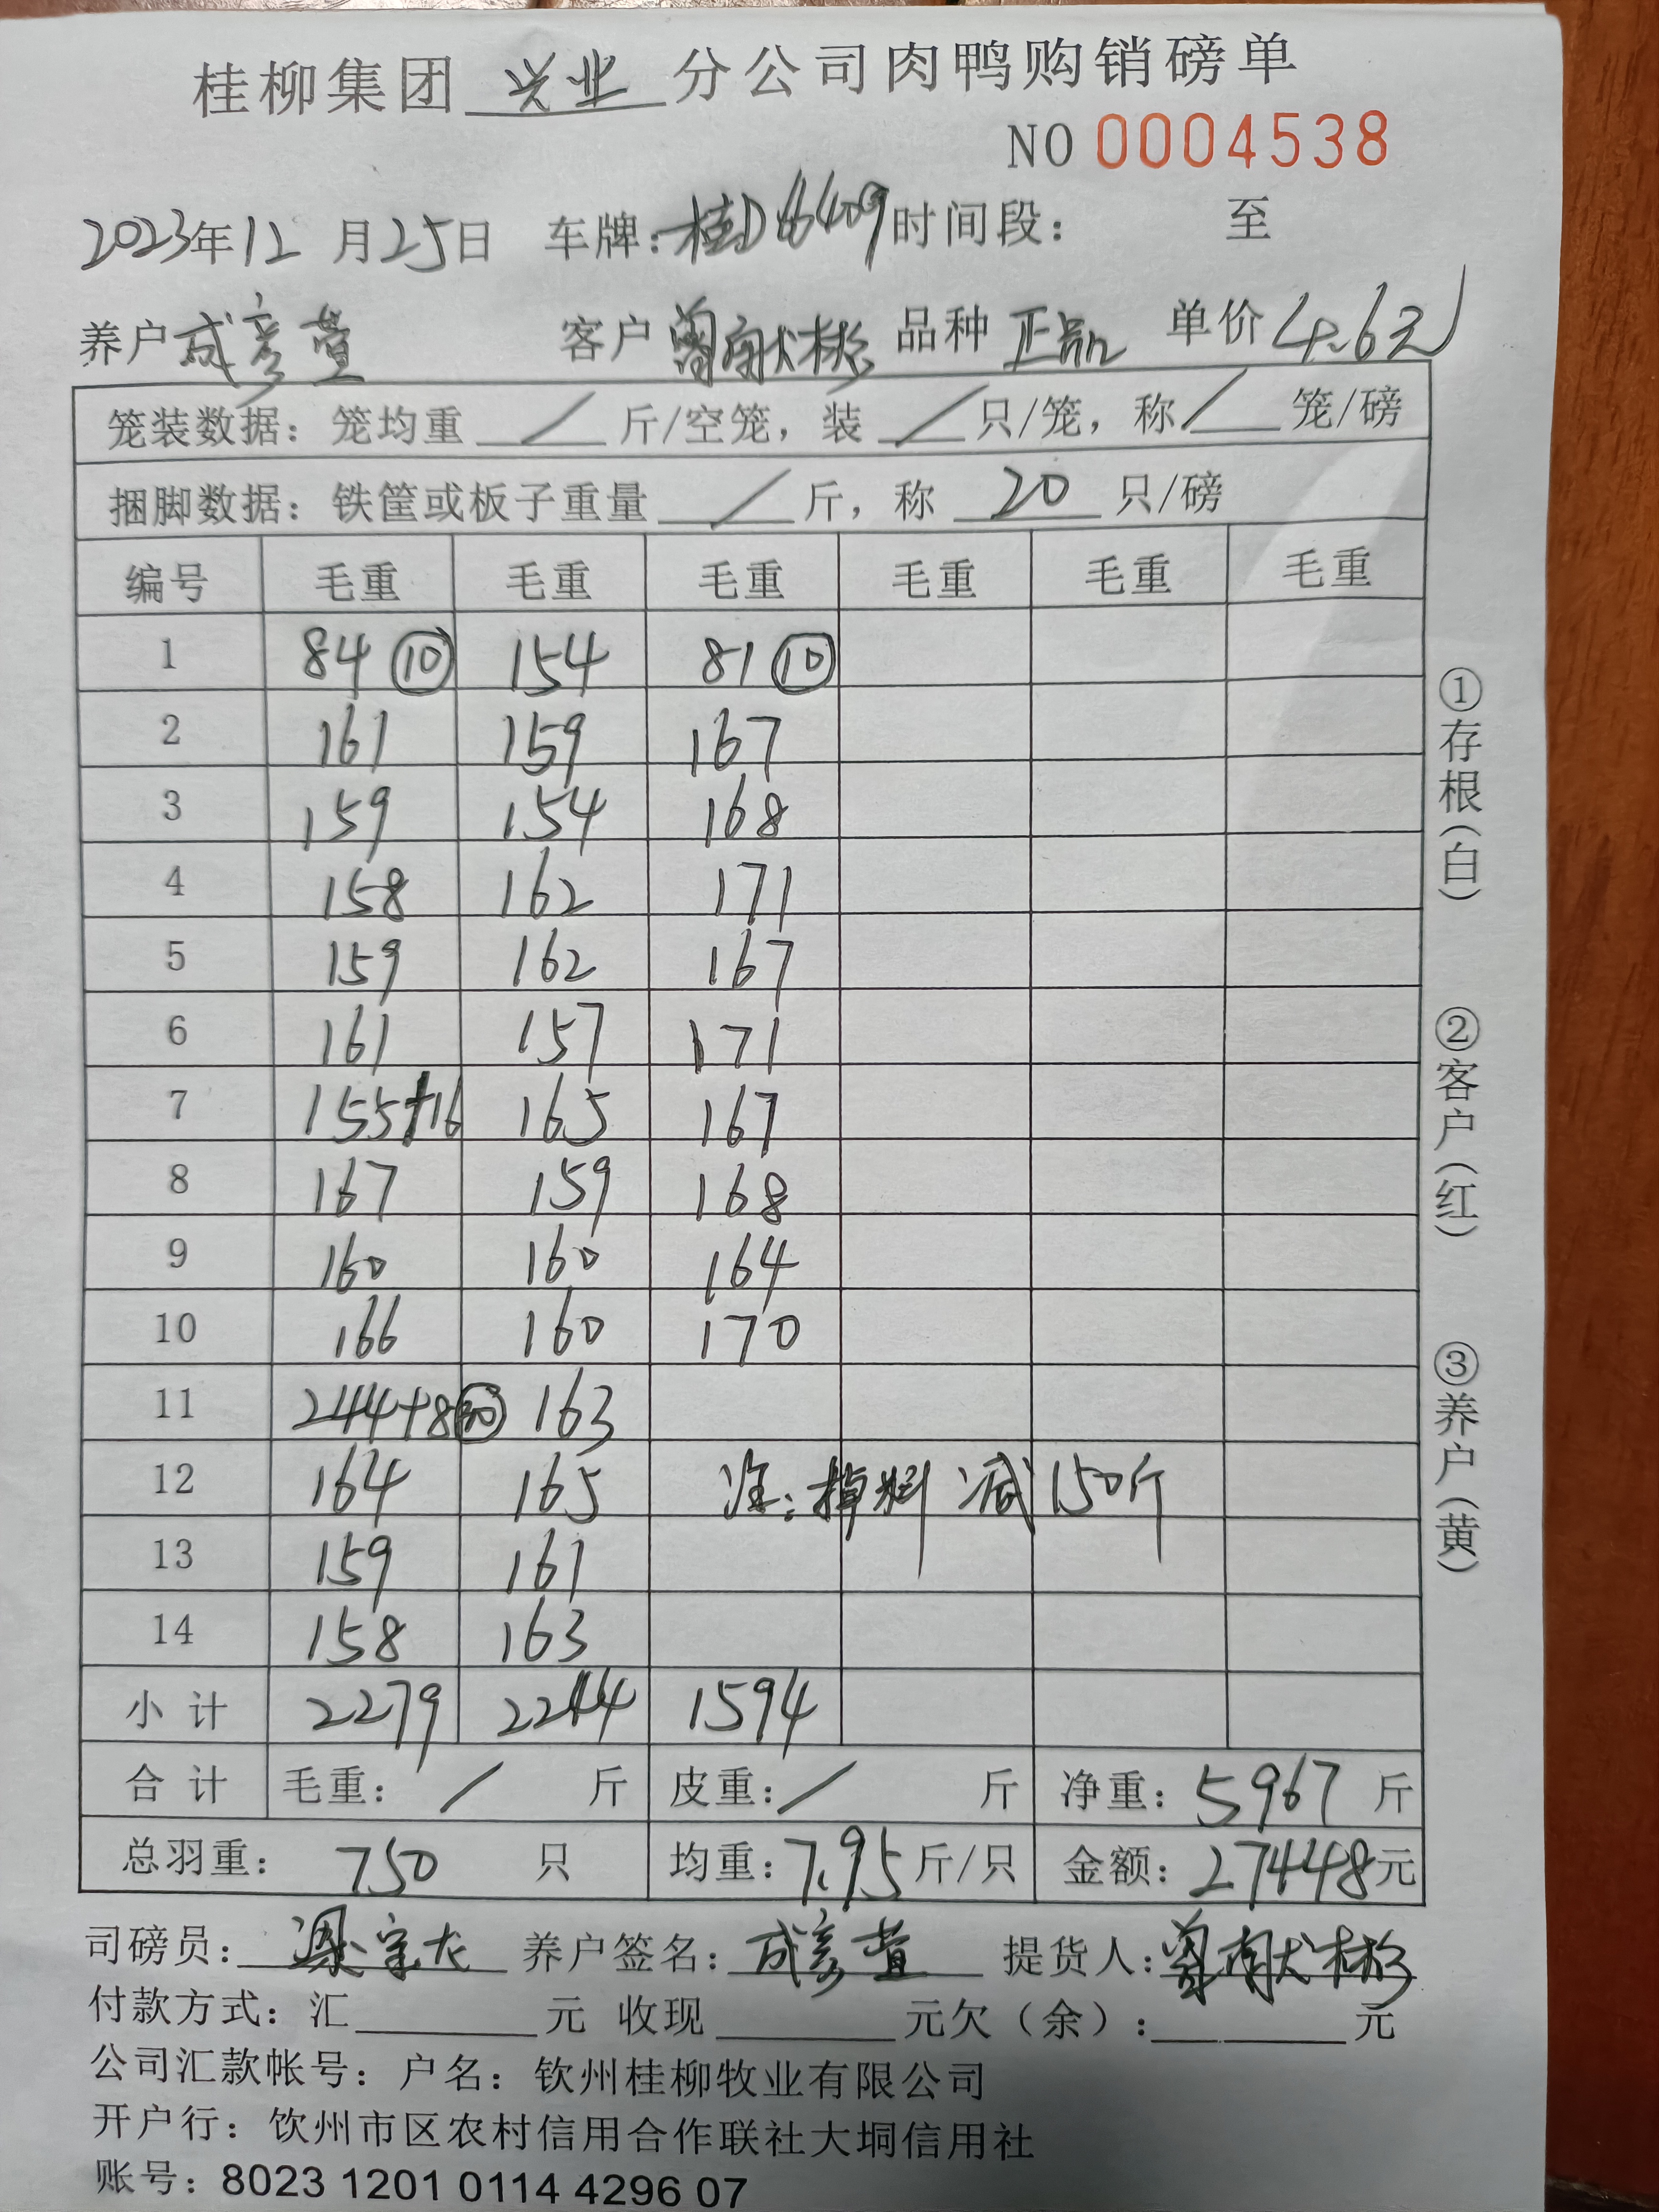 桂柳集团 兴业 分公司肉鸭购销磅单
NO 0004538
2023年12月25日 车牌:桂D 时间段: 至
养户 成彦萱 客户 曾献彬 品种 正品 单价 4.6元
笼装数据: 笼均重 / 斤/空笼, 装 / 只/笼, 称 / 笼/磅
捆脚数据: 铁筐或板子重量 / 斤, 称 20 只/磅
编号 毛重 毛重 毛重 毛重 毛重 毛重
1 84 ⑩ 154 81 ⑩
2 161 159 167
3 159 154 168
4 158 162 171
5 159 162 167
6 161 157 171
7 155+16 165 167
8 167 159 168
9 160 160 164
10 166 160 170
11 244+8 ㉚ 163
12 164 165 注:掉料 减150斤
13 159 161
14 158 163
小计 2279 2244 1594
合计 毛重: / 斤 皮重: / 斤 净重: 5967 斤
总羽重: 750 只 均重: 7.95 斤/只 金额: 27448元
司磅员: 养户签名: 成彦萱 提货人: 曾献彬
付款方式: 汇 元 收现 元欠(余): 元
公司汇款帐号: 户名: 钦州桂柳牧业有限公司
开户行: 钦州市区农村信用合作联社大垌信用社
账号: 8023 1201 0114 4296 07
①存根(白)
②客户(红)
③养户(黄)